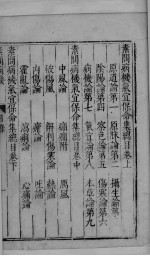 素問病機氣宜保命集總目卷上
原道論第一
原脉論第二
攝生論第三
陰陽論第四
察色論第五
傷寒論第六
病機論第七
氣宜論第八
本草論第九
素問病機氣宜保命集總目卷中
中風論
癘風
破傷風
解利傷寒論
熱論
內傷論
瘧論
吐論
霍亂論
痢論
心痛論
素問病機氣宜保命集總目卷下